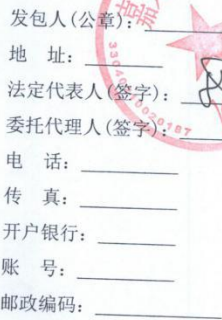 发包人(公章):
地 址:
法定代表人(签字):
委托代理人(签字):
电 话:
传 真:
开户银行:
账 号:
邮政编码: